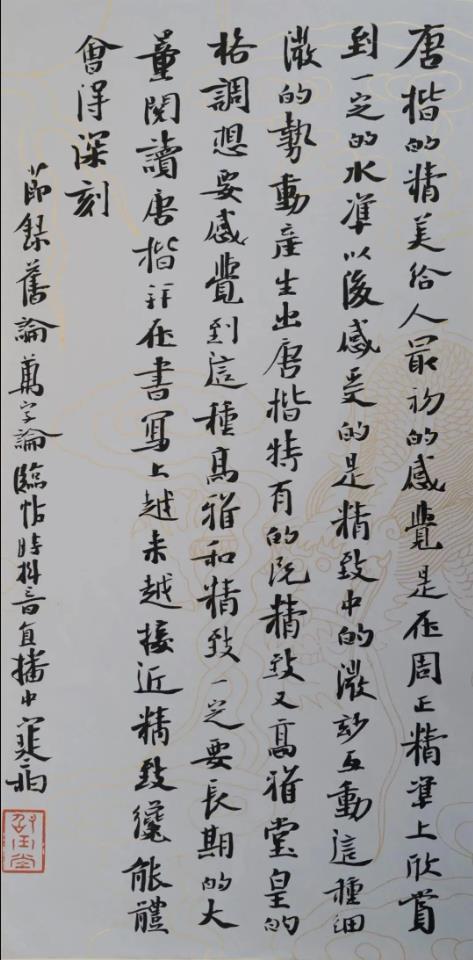 唐楷的精美給人最初的感覺是在周正精準上欣賞
到一定的水準以後感受的是精致中的微妙互動這種細
微的勢動產生出唐楷特有的既精致又高雅堂皇的
格調想要感覺到這種高雅和精致一定要長期的大
量閱讀唐楷并在書寫上越来越接近精致纔能體
會得深刻
節錄舊論萬字論臨帖時抖音直播中寒雨